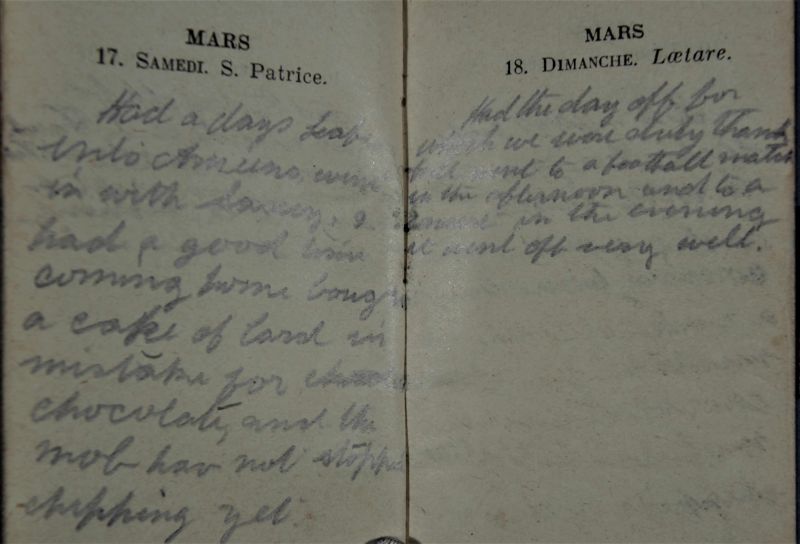 MARS
17. SAMEDI. S. Patrice.
Had a days leave
into Amiens went
in with
had a good time
coming home bought
a cake of lard in
mistake for
chocolate, and the
mob hav not stopped
chipping yet.
MARS
18. DIMANCHE. Lætare.
Had the day off for
which we were duly thank
ful went to a football match
in the afternoon and to a
in the evening
it went off very well.